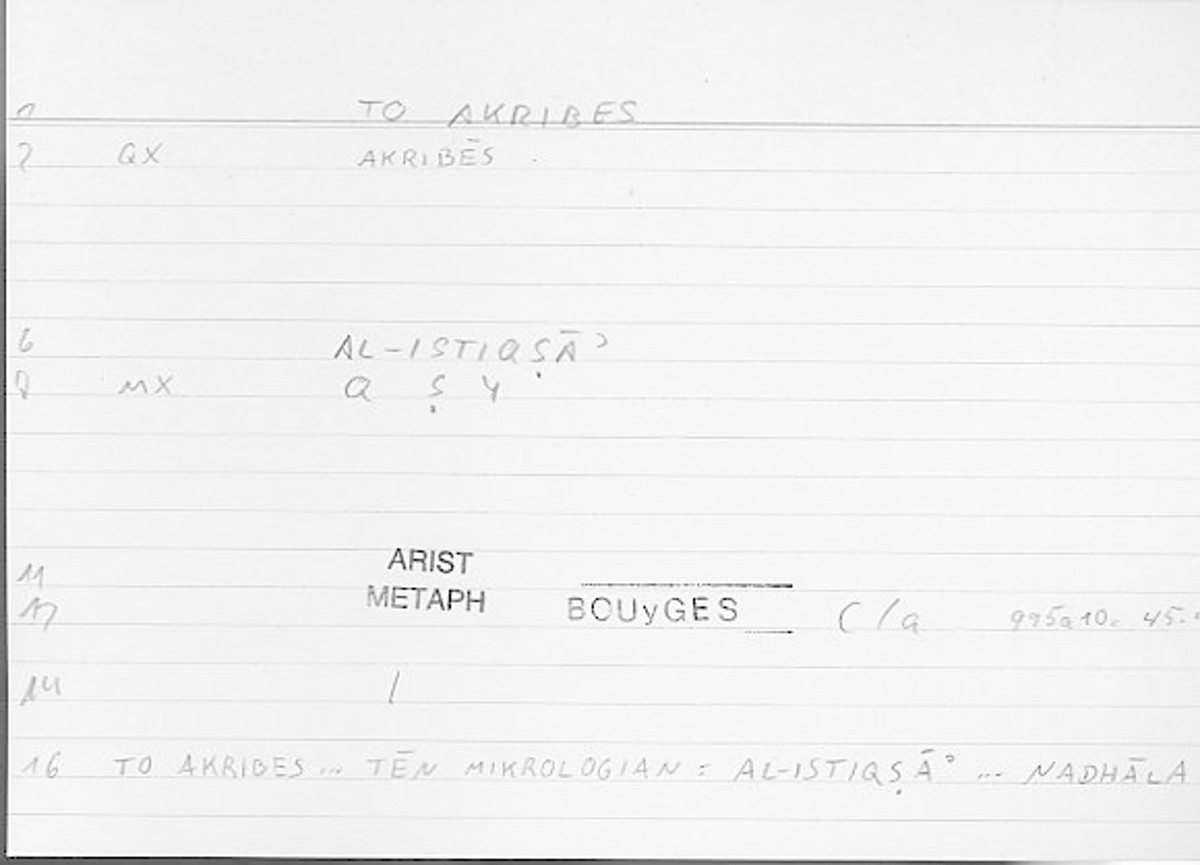 1 TO AKRIBES
2 QX AKRIBĒS
6 AL-ISTIQṢĀʾ
8 MX Q Ṣ Y
11 ARIST
12 METAPH BOUyGES C/a 995a10. 45.
14 /
16 TO AKRIBES ... TĒN MIKROLOGIAN : AL-ISTIQṢĀʾ ... NADHĀLA